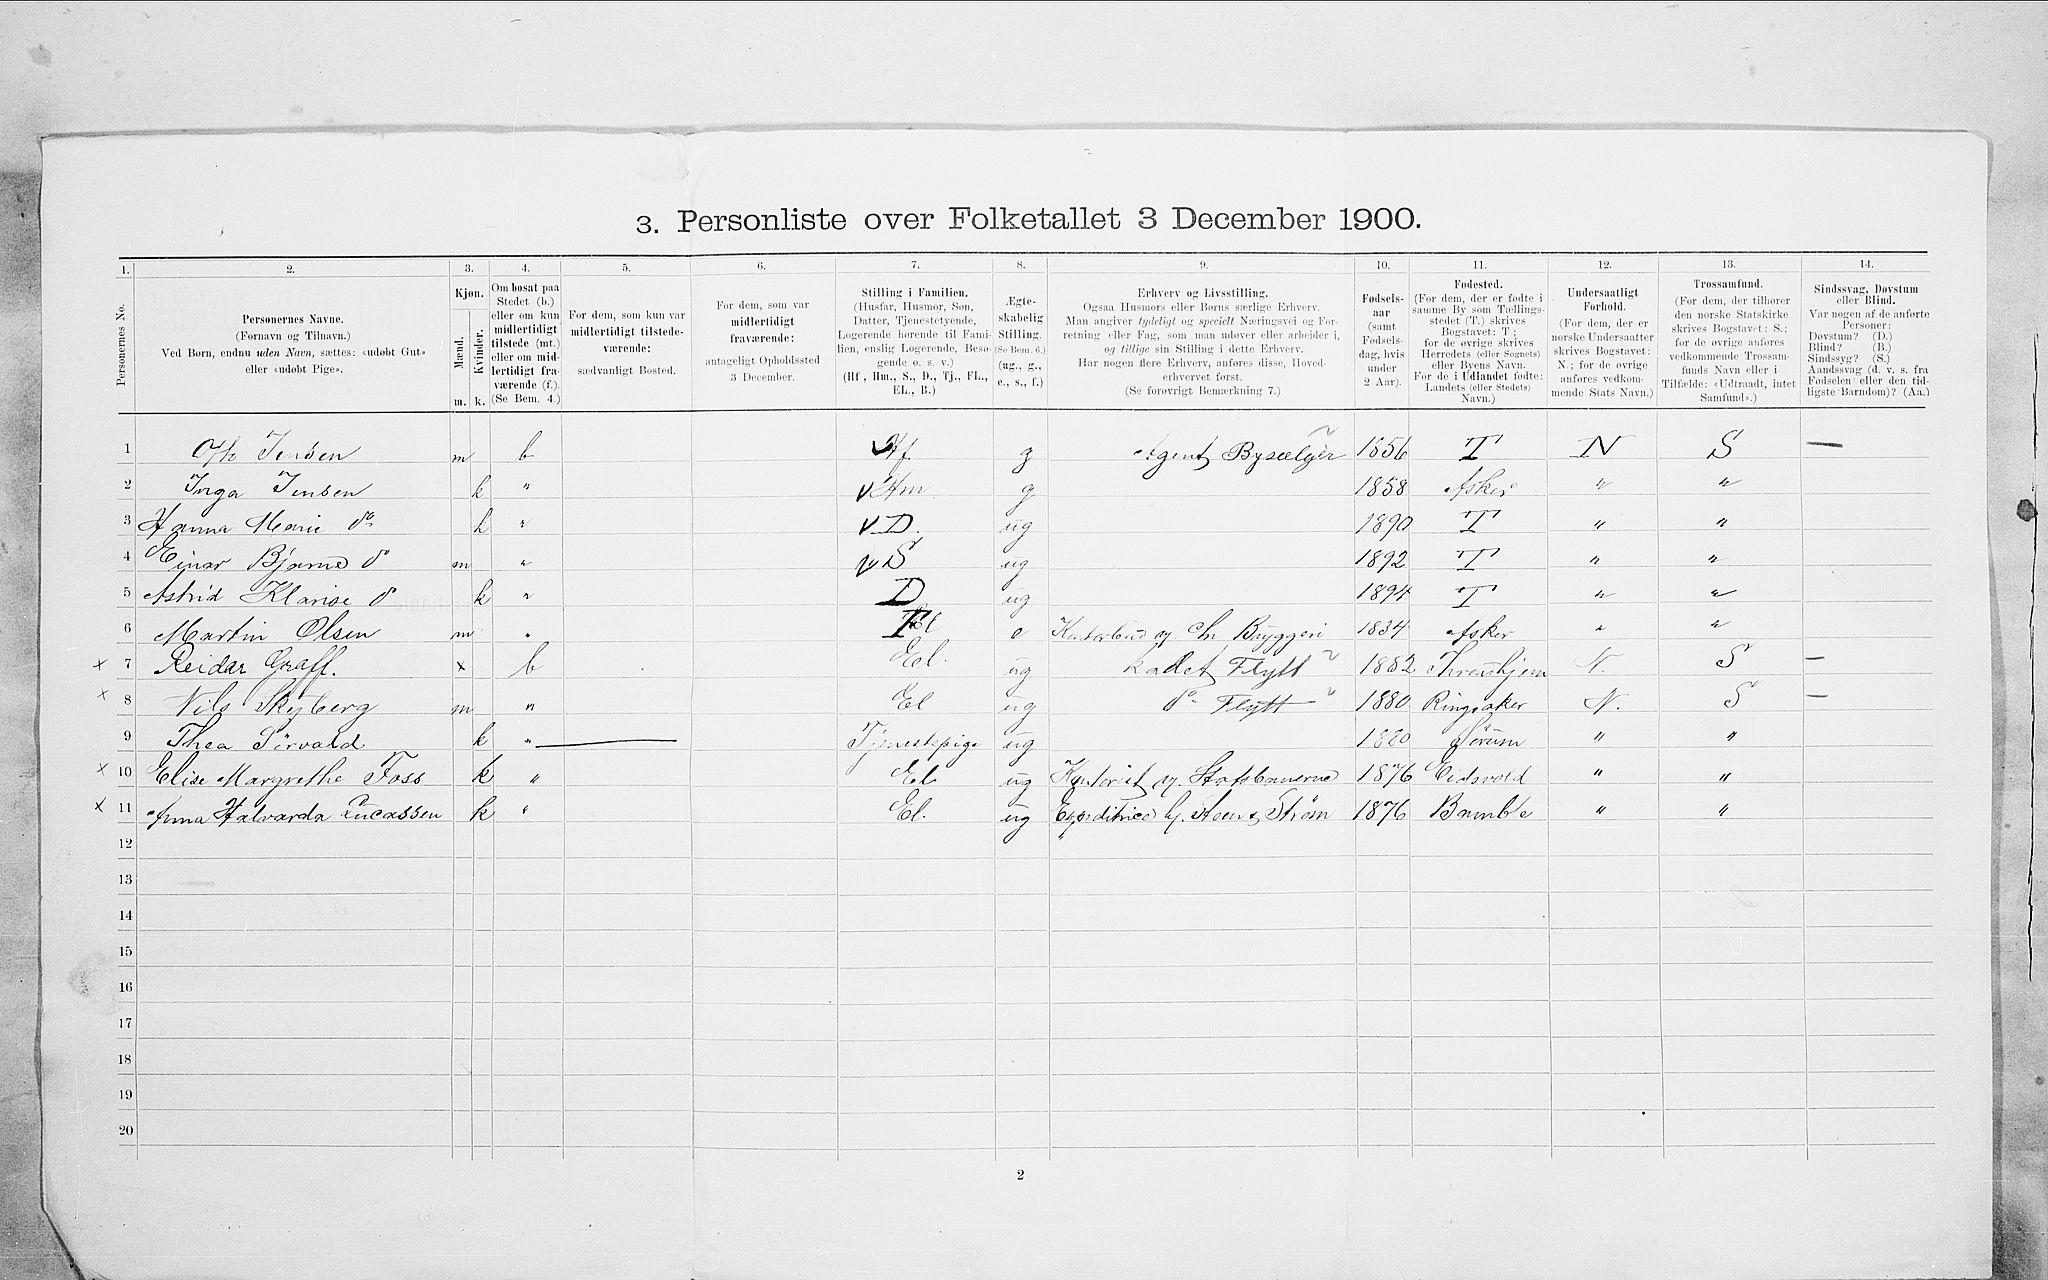 3. Personliste over Folketallet 3 December 1900.
1. 2. 3. 4. 5. 6. 7. 8. 9. 10. 11. 12. 13. 14.
Personernes No.
Personernes Navne.
(Fornavn og Tilnavn.)
Ved Børn, endnu uden Navn, sættes: «udøbt Gut»
eller «udøbt Pige».
Kjøn.
Mænd. Kvinder.
m. k.
Om bosat paa
Stedet (b.)
eller om kun
midlertidigt
tilstede (mt.)
eller om mid-
lertidigt fra-
værende (f.)
(Se Bem. 4.)
For dem, som kun var
midlertidigt tilstede-
værende:
sædvanligt Bosted.
For dem, som var
midlertidigt
fraværende:
antageligt Opholdssted
3 December.
Stilling i Familien.
(Husfar, Husmor, Søn,
Datter, Tjenestetyende,
Logerende hørende til Fami-
lien, enslig Logerende, Besø-
gende o. s. v.)
(Hf., Hm., S., D., Tj., FL.,
EL., B.)
Ægte-
skabelig
Stilling.
(Se Bem. 6.)
(ug., g.,
e., s., f.)
Erhverv og Livsstilling.
Ogsaa Husmors eller Børns særlige Erhverv.
Man angiver tydeligt og specielt Næringsvei og For-
retning eller Fag, som man udøver eller arbeider i,
og tillige sin Stilling i dette Erhverv.
Har nogen flere Erhverv, anføres disse, Hoved-
erhvervet først.
(Se forøvrigt Bemærkning 7.)
Fødsels-
aar
(samt
Fødsels-
dag, hvis
under
2 Aar).
Fødested.
(For dem, der er fødte i
samme By som Tællings-
stedet (T.) skrives
Bogstavet: T;
for de øvrige skrives
Herredets (eller Sognets)
eller Byens Navn.
For de i Udlandet fødte:
Landets (eller Stedets)
Navn.)
Undersaatligt
Forhold.
(For dem, der er
norske Undersaatter
skrives Bogstavet:
N.; for de øvrige
anføres vedkom-
mende Stats Navn.)
Trossamfund.
(For dem, der tilhører
den norske Statskirke
skrives Bogstavet: S.;
for de øvrige anføres
vedkommende Trossam-
funds Navn eller i
Tilfælde: «Udtraadt, intet
Samfund».)
Sindssvag, Døvstum
eller Blind.
Var nogen af de anførte
Personer:
Døvstum? (D.)
Blind? (B.)
Sindssyg? (S.)
Aandssvag (d. v. s. fra
Fødselen eller den tid-
ligste Barndom)? (Aa.)
1 Otto Jensen m b Hf g Agent, Bysælger 1856 T N S —
2 Inga Jensen k " Hm g 1858 Asker " "
3 Hanna Marie do k " D. ug 1890 T " "
4 Einar Bjarne do m " S ug 1892 T " "
5 Astrid Klarise do k " D ug 1894 T " "
6 Martin Olsen m " El e Kontorbud v. Chr Bryggeri 1834 Asker " "
x 7 Reidar Graff. x b El. ug kadet Flytt 1882 Throndhjem N. S —
x 8 Nils Skyberg m " El ug do Flytt 1880 Ringsaker N. S —
9 Thea Sørvald k " Tjenestepige ug 1880 Sørum " "
x 10 Elise Margrethe Foss k " El ug Kontorist v. Statsbanerne 1876 Eidsvold " "
x 11 Anna Halvarda Lucassen k " El. ug Expeditrice hj. Steen & Strøm 1876 Bamble " "
12
13
14
15
16
17
18
19
20
2